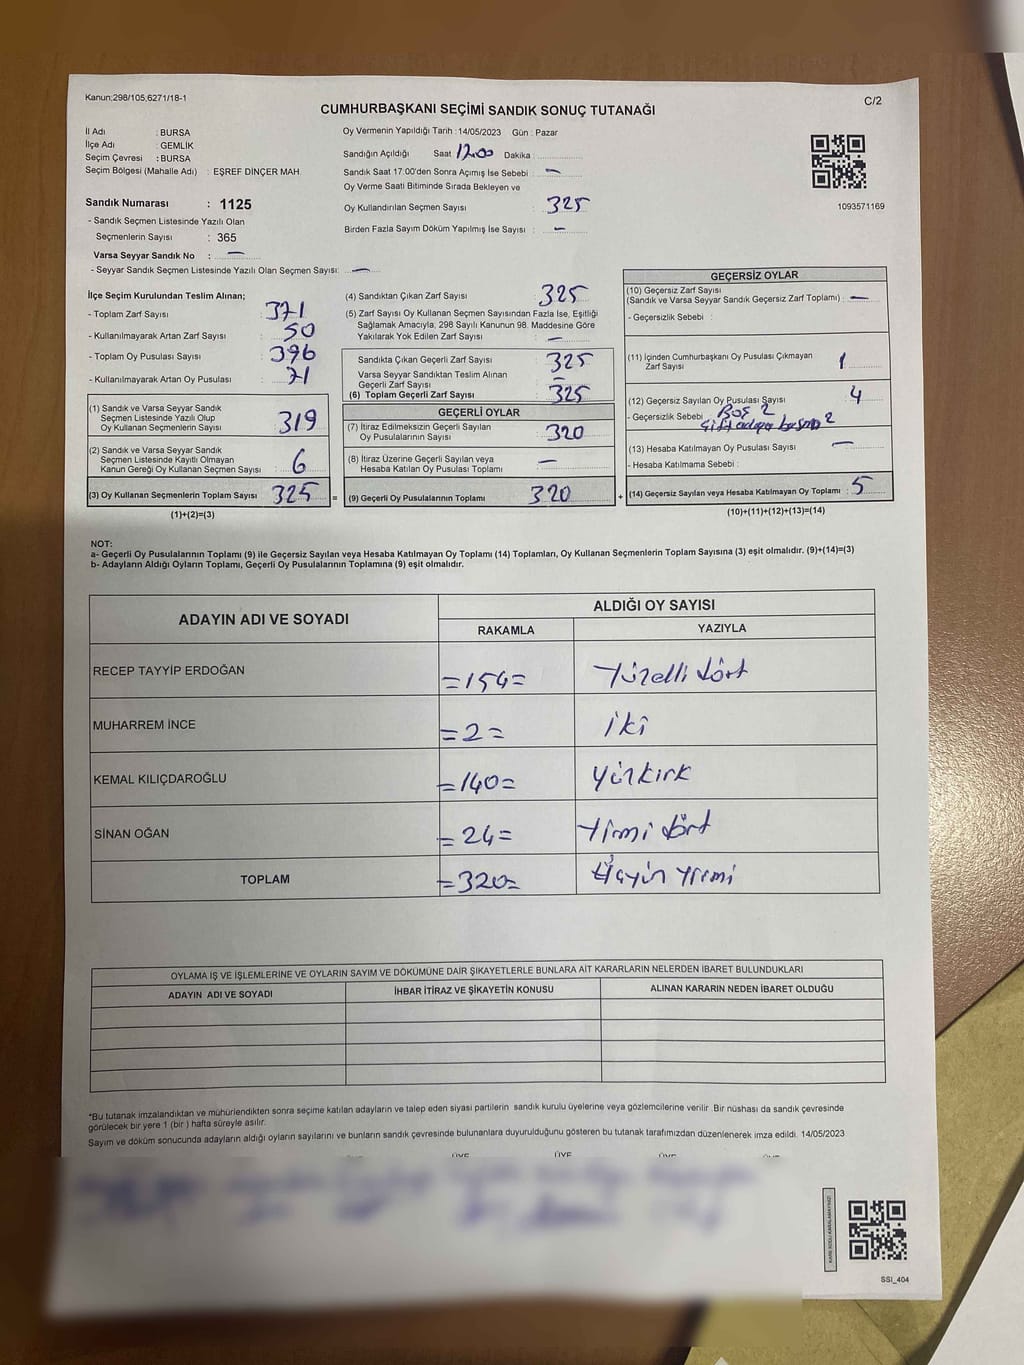 Kanun;298/105,6271/18-1
C/2
CUMHURBAŞKANI SEÇİMİ SANDIK SONUÇ TUTANAĞI
İl Adı : BURSA
İlçe Adı : GEMLİK
Seçim Çevresi : BURSA
Seçim Bölgesi (Mahalle Adı) : EŞREF DİNÇER MAH.
Sandık Numarası : 1125
- Sandık Seçmen Listesinde Yazılı Olan
Seçmenlerin Sayısı : 365
Varsa Seyyar Sandık No : —
- Seyyar Sandık Seçmen Listesinde Yazılı Olan Seçmen Sayısı: —
Oy Vermenin Yapıldığı Tarih : 14/05/2023 Gün : Pazar
Sandığın Açıldığı Saat Dakika :
Sandık Saat 17:00'den Sonra Açımış İse Sebebi : —
Oy Verme Saati Bitiminde Sırada Bekleyen ve
Oy Kullandırılan Seçmen Sayısı : 325
Birden Fazla Sayım Döküm Yapılmış İse Sayısı : —
1093571169
İlçe Seçim Kurulundan Teslim Alınan;
- Toplam Zarf Sayısı : 371
- Kullanılmayarak Artan Zarf Sayısı : 50
- Toplam Oy Pusulası Sayısı : 396
- Kullanılmayarak Artan Oy Pusulası : 71
(1) Sandık ve Varsa Seyyar Sandık
Seçmen Listesinde Yazılı Olup
Oy Kullanan Seçmenlerin Sayısı : 319
(2) Sandık ve Varsa Seyyar Sandık
Seçmen Listesinde Kayıtlı Olmayan
Kanun Gereği Oy Kullanan Seçmen Sayısı : 6
(3) Oy Kullanan Seçmenlerin Toplam Sayısı : 325
(1)+(2)=(3)
(4) Sandıktan Çıkan Zarf Sayısı : 325
(5) Zarf Sayısı Oy Kullanan Seçmen Sayısından Fazla İse, Eşitliği
Sağlamak Amacıyla, 298 Sayılı Kanunun 98. Maddesine Göre
Yakılarak Yok Edilen Zarf Sayısı : —
Sandıkta Çıkan Geçerli Zarf Sayısı : 325
Varsa Seyyar Sandıktan Teslim Alınan
Geçerli Zarf Sayısı : —
(6) Toplam Geçerli Zarf Sayısı : 325
GEÇERLİ OYLAR
(7) İtiraz Edilmeksizin Geçerli Sayılan
Oy Pusulalarının Sayısı : 320
(8) İtiraz Üzerine Geçerli Sayılan veya
Hesaba Katılan Oy Pusulası Toplamı : —
= (9) Geçerli Oy Pusulalarının Toplamı : 320
GEÇERSİZ OYLAR
(10) Geçersiz Zarf Sayısı
(Sandık ve Varsa Seyyar Sandık Geçersiz Zarf Toplamı) : —
- Geçersizlik Sebebi :
(11) İçinden Cumhurbaşkanı Oy Pusulası Çıkmayan
Zarf Sayısı : 1
(12) Geçersiz Sayılan Oy Pusulası Sayısı : 4
- Geçersizlik Sebebi : BOŞ 2
2
(13) Hesaba Katılmayan Oy Pusulası Sayısı : —
- Hesaba Katılmama Sebebi :
+ (14) Geçersiz Sayılan veya Hesaba Katılmayan Oy Toplamı : 5
(10)+(11)+(12)+(13)=(14)
NOT:
a- Geçerli Oy Pusulalarının Toplamı (9) ile Geçersiz Sayılan veya Hesaba Katılmayan Oy Toplamı (14) Toplamları, Oy Kullanan Seçmenlerin Toplam Sayısına (3) eşit olmalıdır. (9)+(14)=(3)
b- Adayların Aldığı Oyların Toplamı, Geçerli Oy Pusulalarının Toplamına (9) eşit olmalıdır.
ADAYIN ADI VE SOYADI
ALDIĞI OY SAYISI
RAKAMLA YAZIYLA
RECEP TAYYİP ERDOĞAN =154= Yüzelli dört
MUHARREM İNCE =2= iki
KEMAL KILIÇDAROĞLU =140= Yüzkırk
SİNAN OĞAN =24= Yirmi dört
TOPLAM =320= Üçyüz Yirmi
OYLAMA İŞ VE İŞLEMLERİNE VE OYLARIN SAYIM VE DÖKÜMÜNE DAİR ŞİKAYETLERLE BUNLARA AİT KARARLARIN NELERDEN İBARET BULUNDUKLARI
ADAYIN ADI VE SOYADI İHBAR İTİRAZ VE ŞİKAYETİN KONUSU ALINAN KARARIN NEDEN İBARET OLDUĞU
*Bu tutanak imzalandıktan ve mühürlendikten sonra seçime katılan adayların ve talep eden siyasi partilerin sandık kurulu üyelerine veya gözlemcilerine verilir .Bir nüshası da sandık çevresinde
görülecek bir yere 1 (bir ) hafta süreyle asılır.
Sayım ve döküm sonucunda adayların aldığı oyların sayılarını ve bunların sandık çevresinde bulunanlara duyurulduğunu gösteren bu tutanak tarafımızdan düzenlenerek imza edildi. 14/05/2023
ÜYE ÜYE ÜYE ÜYE
KARE KODU KARALAMAYINIZ!
SSI_404